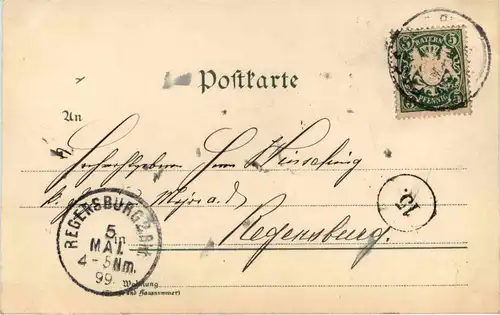 BAYERN
5 5
PFENNIG
Postkarte
An
Hochwohlgeboren Herrn
k. Major a. D.
15.
Regensburg.
REGENSBURG 2. B.H.
5
MAI.
4-5 Nm.
99.
Wohnung
(Straße und Hausnummer)